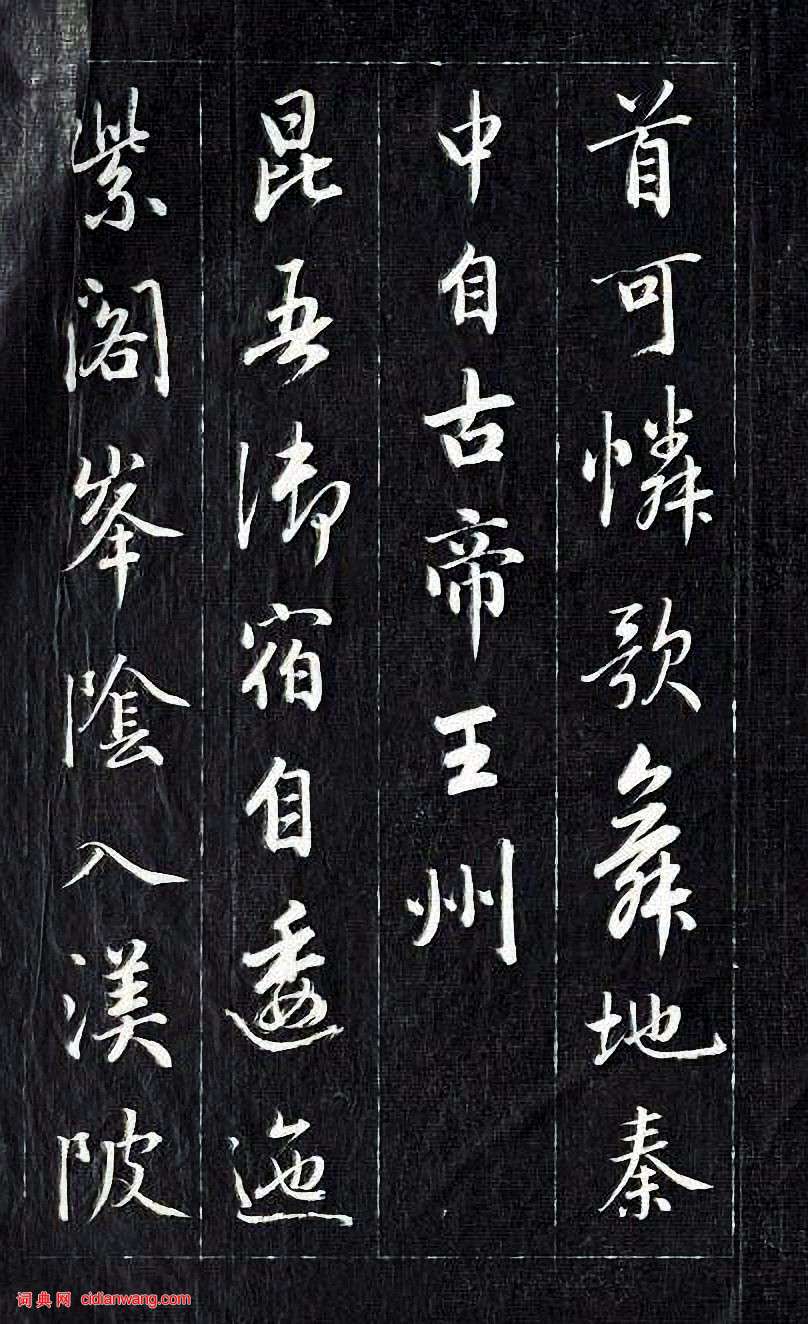 首可憐歌舞地秦
中自古帝王州
昆吾御宿自逶迤
紫閣峯陰入渼陂
词典网 cidianwang.com